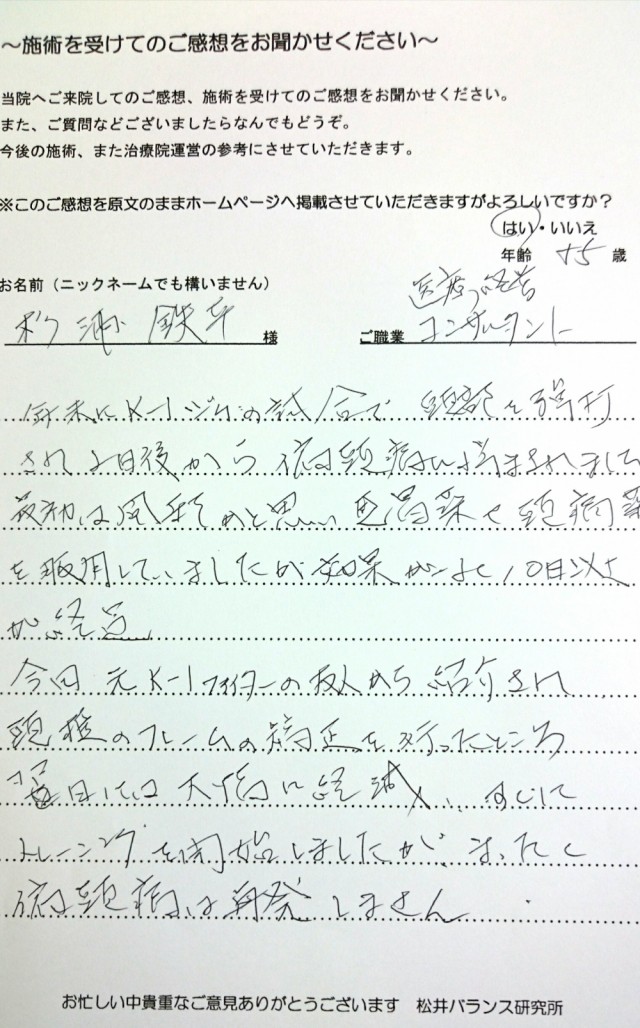 ～施術を受けてのご感想をお聞かせください～
当院へご来院してのご感想、施術を受けてのご感想をお聞かせください。
また、ご質問などございましたらなんでもどうぞ。
今後の施術、また治療院運営の参考にさせていただきます。
※このご感想を原文のままホームページへ掲載させていただきますがよろしいですか？
はい・いいえ
年齢 45 歳
お名前（ニックネームでも構いません）
医療・経営
杉浦 鉄平 様 ご職業 コンサルタント
年末にK-1ジムの試合で 頭部を強打
され 2日後から 偏頭痛に悩まされました
最初は風邪かと思い 葛薬や頭痛薬
を服用していましたが効果がなく10日以上
が経過
今回 元K-1ファイターの友人から 紹介され
頸椎のフレームの矯正を行ったところ
翌日には大幅に軽減、すぐに
トレーニングを開始しましたが、まったく
偏頭痛は再発しません
お忙しい中貴重なご意見ありがとうございます 松井バランス研究所